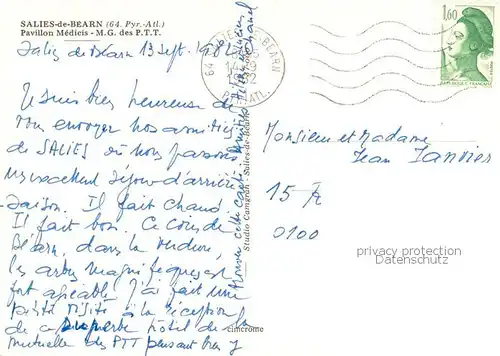 SALIES-de-BEARN (64. Pyr.-Atl.)
Pavillon Médicis - M.G. des P.T.T.
Salies de Béarn 13 Sept. 1982
Je suis bien heureuse de
vous envoyer nos amitiés
de SALIES où nous passons
un excellent séjour d'arrière
saison. Il fait chaud
Il fait bon. Ce coin de
Béarn, dans la verdure,
les arbres magnifiques est
fort agréable. J'ai fait une
petite visite à la réception
de ce superbe hôtel de la
mutuelle des PTT pensant bien y
trouver cette carte
Studio Comgrah - Salies-de-Béarn
cimcrome
64
BEARN
PYR. ATL.
1,60
REPUBLIQUE FRANÇAISE
Monsieur et Madame
Jean Janvier
15
0100
privacy protection
Datenschutz